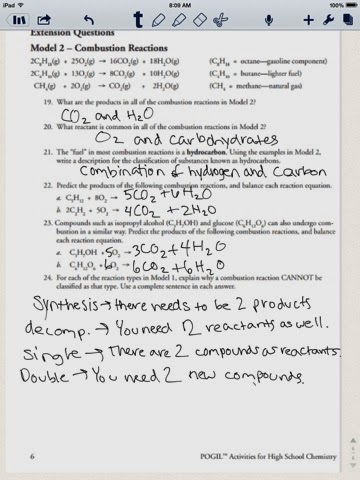 iPad
8:09 AM
Extension Questions
Model 2 – Combustion Reactions
2C₈H₁₈(g) + 25O₂(g) → 16CO₂(g) + 18H₂O(g) (C₈H₁₈ = octane—gasoline component)
2C₄H₁₀(g) + 13O₂(g) → 8CO₂(g) + 10H₂O(g) (C₄H₁₀ = butane—lighter fuel)
CH₄(g) + 2O₂(g) → CO₂(g) + 2H₂O(g) (CH₄ = methane—natural gas)
19. What are the products in all of the combustion reactions in Model 2?
CO2 and H2O
20. What reactant is common in all of the combustion reactions in Model 2?
O2 and carbohydrates
21. The "fuel" in most combustion reactions is a hydrocarbon. Using the examples in Model 2,
write a description for the classification of substances known as hydrocarbons.
Combination of hydrogen and carbon
22. Predict the products of the following combustion reactions, and balance each reaction equation.
a. C₅H₁₂ + 8O₂ → 5CO2 + 6H2O
b. 2C₂H₂ + 5O₂ → 4CO2 + 2H2O
23. Compounds such as isopropyl alcohol (C₃H₇OH) and glucose (C₆H₁₂O₆) can also undergo com-
bustion in a similar way. Predict the products of the following combustion reactions, and balance
each reaction equation.
a. C₃H₇OH + 5O₂ → 3CO2 + 4H2O
b. C₆H₁₂O₆ + 6O₂ → 6CO2 + 6H2O
24. For each of the reaction types in Model 1, explain why a combustion reaction CANNOT be
classified as that type. Use a complete sentence in each answer.
Synthesis → there needs to be 2 products
decomp. → You need 2 reactants as well.
Single → There are 2 compounds as reactants.
Double → You need 2 new compounds.
6
POGIL™ Activities for High School Chemistry